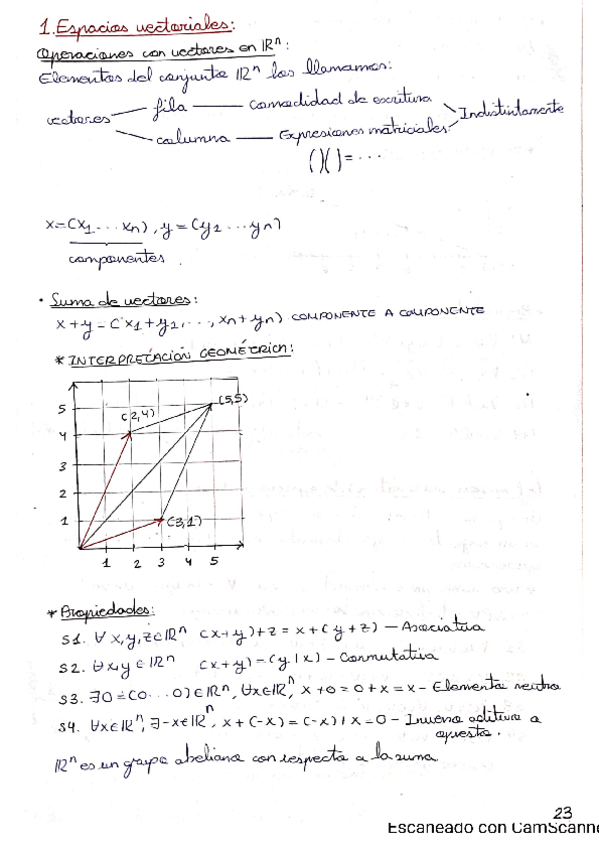 1. Espacios vectoriales:
Operaciones con vectores en ℝⁿ:
Elementos del conjunto ℝⁿ los llamamos:
vectores — fila — comodidad de escritura
columna — Expresiones matriciales
Indistintamente
( )( ) = ...
x=(x1 ... xn), y=(y1 ... yn)
componentes
· Suma de vectores:
x+y=(x1+y1, ..., xn+yn) COMPONENTE A COMPONENTE
* INTERPRETACIÓN GEOMÉTRICA:
5 (5,5)
(2,4)
4
3
2
1 (3,1)
1 2 3 4 5
* Propiedades:
S1. ∀x,y,z∈ℝⁿ (x+y)+z = x+(y+z) — Asociativa
S2. ∀x,y∈ℝⁿ (x+y)=(y+x) — Conmutativa
S3. ∃0=(0...0)∈ℝⁿ, ∀x∈ℝⁿ, x+0=0+x=x — Elemento neutro
S4. ∀x∈ℝⁿ, ∃-x∈ℝⁿ, x+(-x)=(-x)+x=0 — Inverso aditivo o
opuesto.
ℝⁿ es un grupo abeliano con respecto a la suma
23
Escaneado con CamScanne